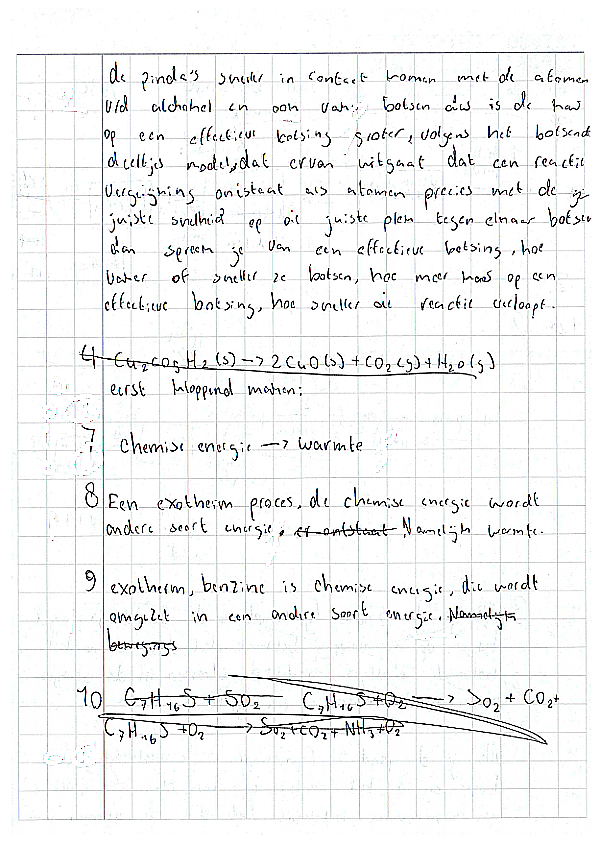 de pinda's sneller in contact komen met de atomen
v/d alchohol en dan vaker botsen dus is de kans
op een effectieve botsing groter, volgens het botsende
deeltjes model, dat ervan uitgaat dat een reactie
vergelijking ontstaat als atomen precies met de
juiste snelheid op de juiste plek tegen elkaar botsen
dan spreek je van een effectieve botsing, hoe
vaker of sneller ze botsen, hoe meer kans op een
effectieve botsing, hoe sneller de reactie verloopt.
4 Cu2CO5H2(s) → 2CuO(s) + CO2(g) + H2O(g)
eerst kloppend maken:
7 Chemise energie → warmte
8 Een exotherm proces, de chemise energie wordt
andere soort energie. er ontstaat Namelijk warmte.
9 exotherm, benzine is chemise energie, die wordt
omgezet in een andere soort energie. Namelijk
bewegings
10 C7H16S + SO2 C7H16S + O2 → SO2 + CO2 +
C7H16S + O2 → SO2 + CO2 + NH3 + O2